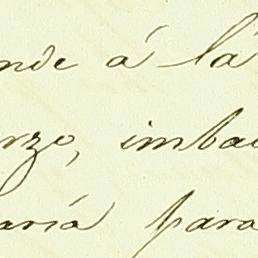 nde á la
rzo, imba
aria para